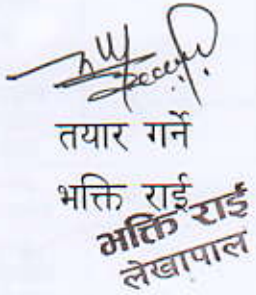 तयार गर्ने
भक्ति राई
भक्ति राई
लेखापाल